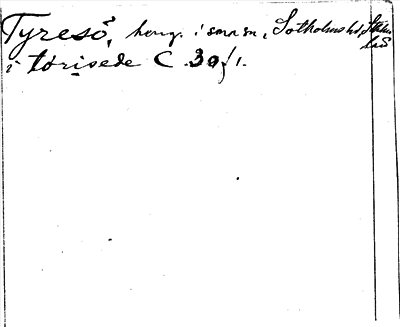 Tyresö, herrg. i smn sn, Sotholms hd, Sthlms län
i törisede C 30 f/1.